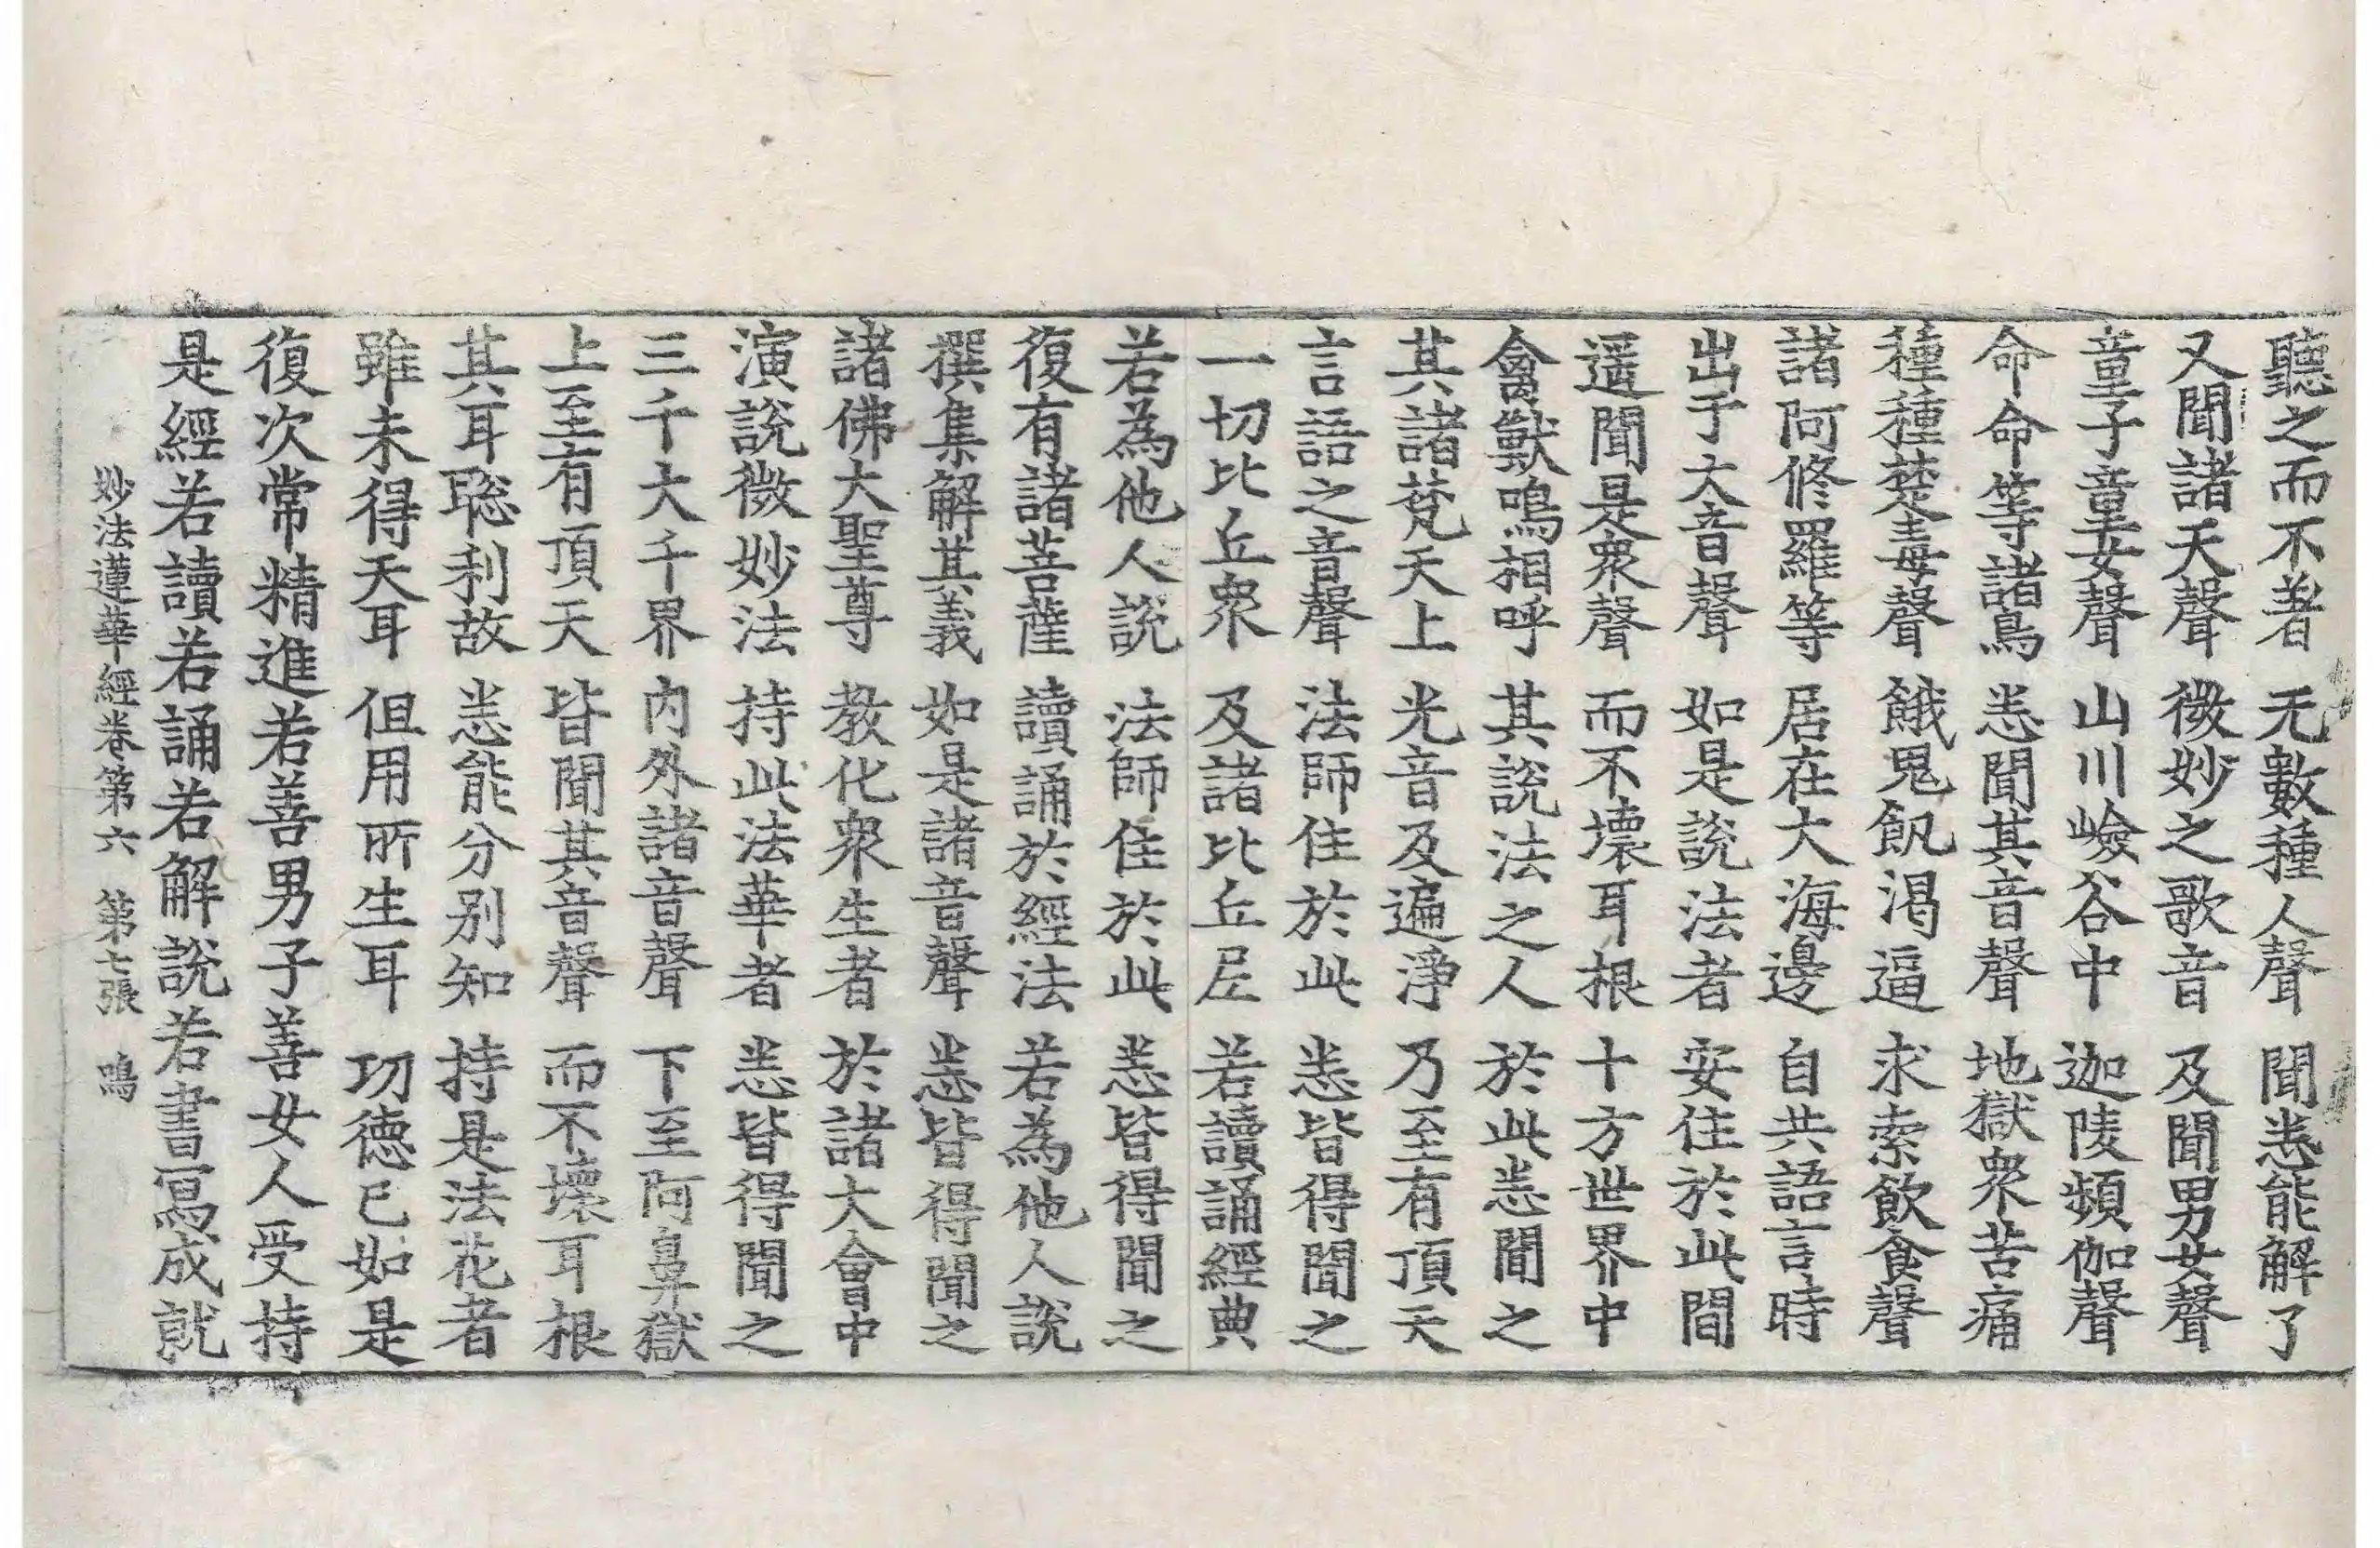 聽之而不著　无數種人聲　聞悉能解了
又聞諸天聲　微妙之歌音　及聞男女聲
童子童女聲　山川嶮谷中　迦陵頻伽聲
命命等諸鳥　悉聞其音聲　地獄衆苦痛
種種楚毒聲　餓鬼飢渴逼　求索飲食聲
諸阿修羅等　居在大海邊　自共語言時
出于大音聲　如是說法者　安住於此間
遥聞是衆聲　而不壞耳根　十方世界中
禽獸鳴相呼　其說法之人　於此悉聞之
其諸梵天上　光音及遍淨　乃至有頂天
言語之音聲　法師住於此　悉皆得聞之
一切比丘衆　及諸比丘尼　若讀誦經典
若為他人說　法師住於此　悉皆得聞之
復有諸菩薩　讀誦於經法　若為他人說
撰集解其義　如是諸音聲　悉皆得聞之
諸佛大聖尊　教化衆生者　於諸大會中
演說微妙法　持此法華者　悉皆得聞之
三千大千界　內外諸音聲　下至阿鼻獄
上至有頂天　皆聞其音聲　而不壞耳根
其耳聡利故　悉能分別知　持是法花者
雖未得天耳　但用所生耳　功德已如是
復次常精進若善男子善女人受持
是經若讀若誦若解說若書寫成就
妙法蓮華經卷第六　第七張　鳴